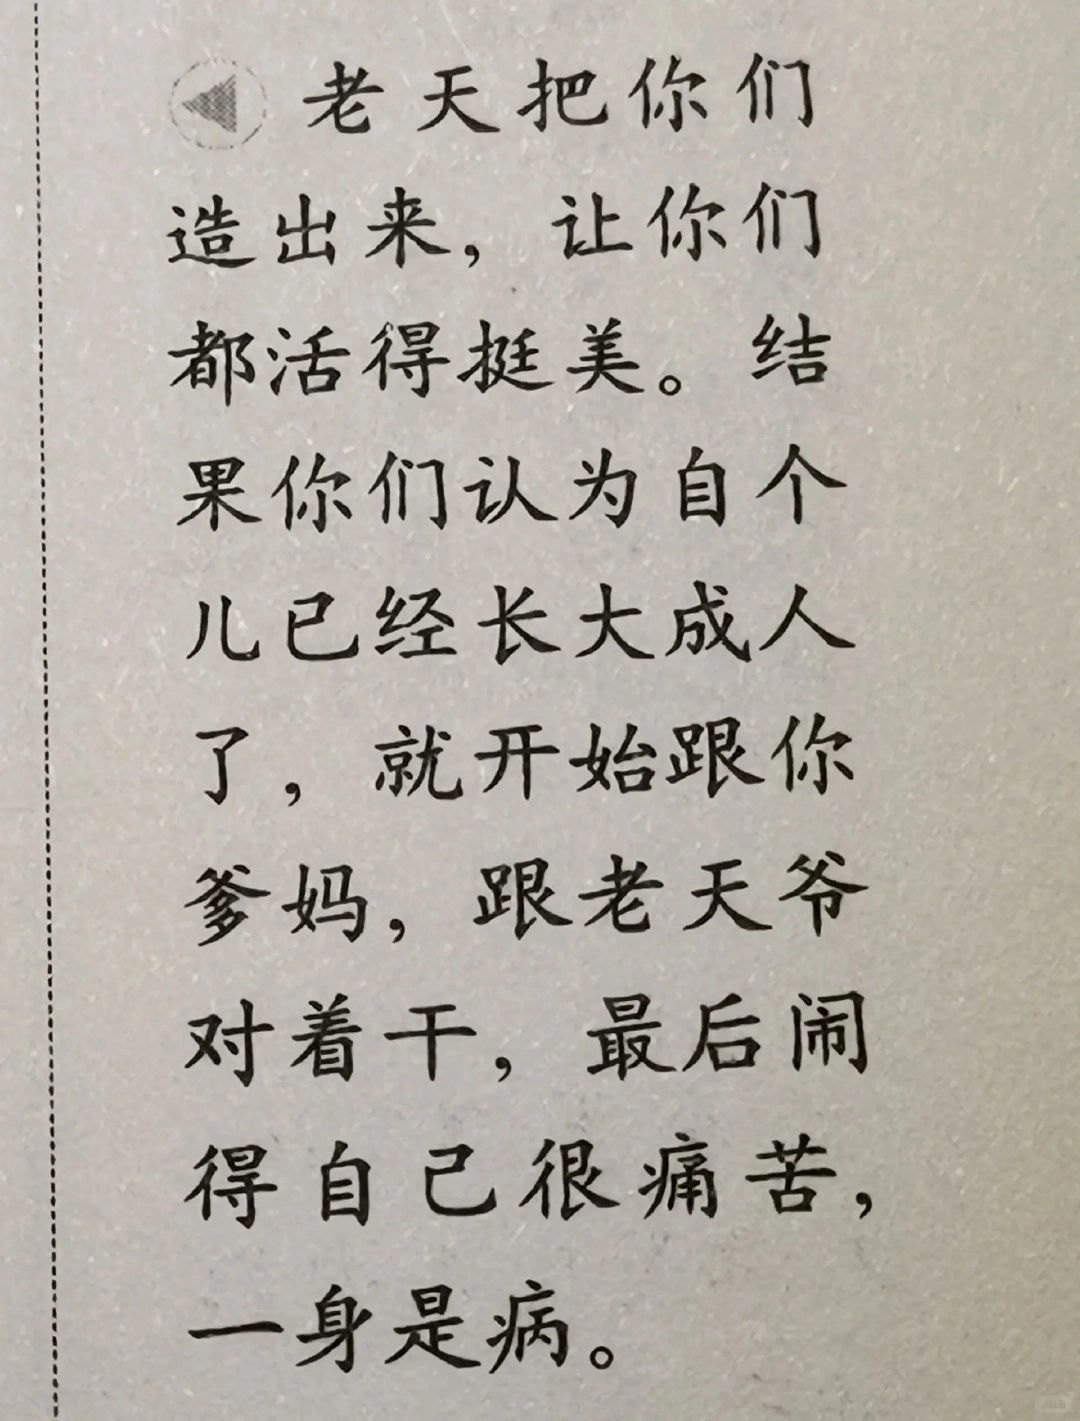 老天把你们
造出来，让你们
都活得挺美。结
果你们认为自个
儿已经长大成人
了，就开始跟你
爹妈，跟老天爷
对着干，最后闹
得自己很痛苦，
一身是病。